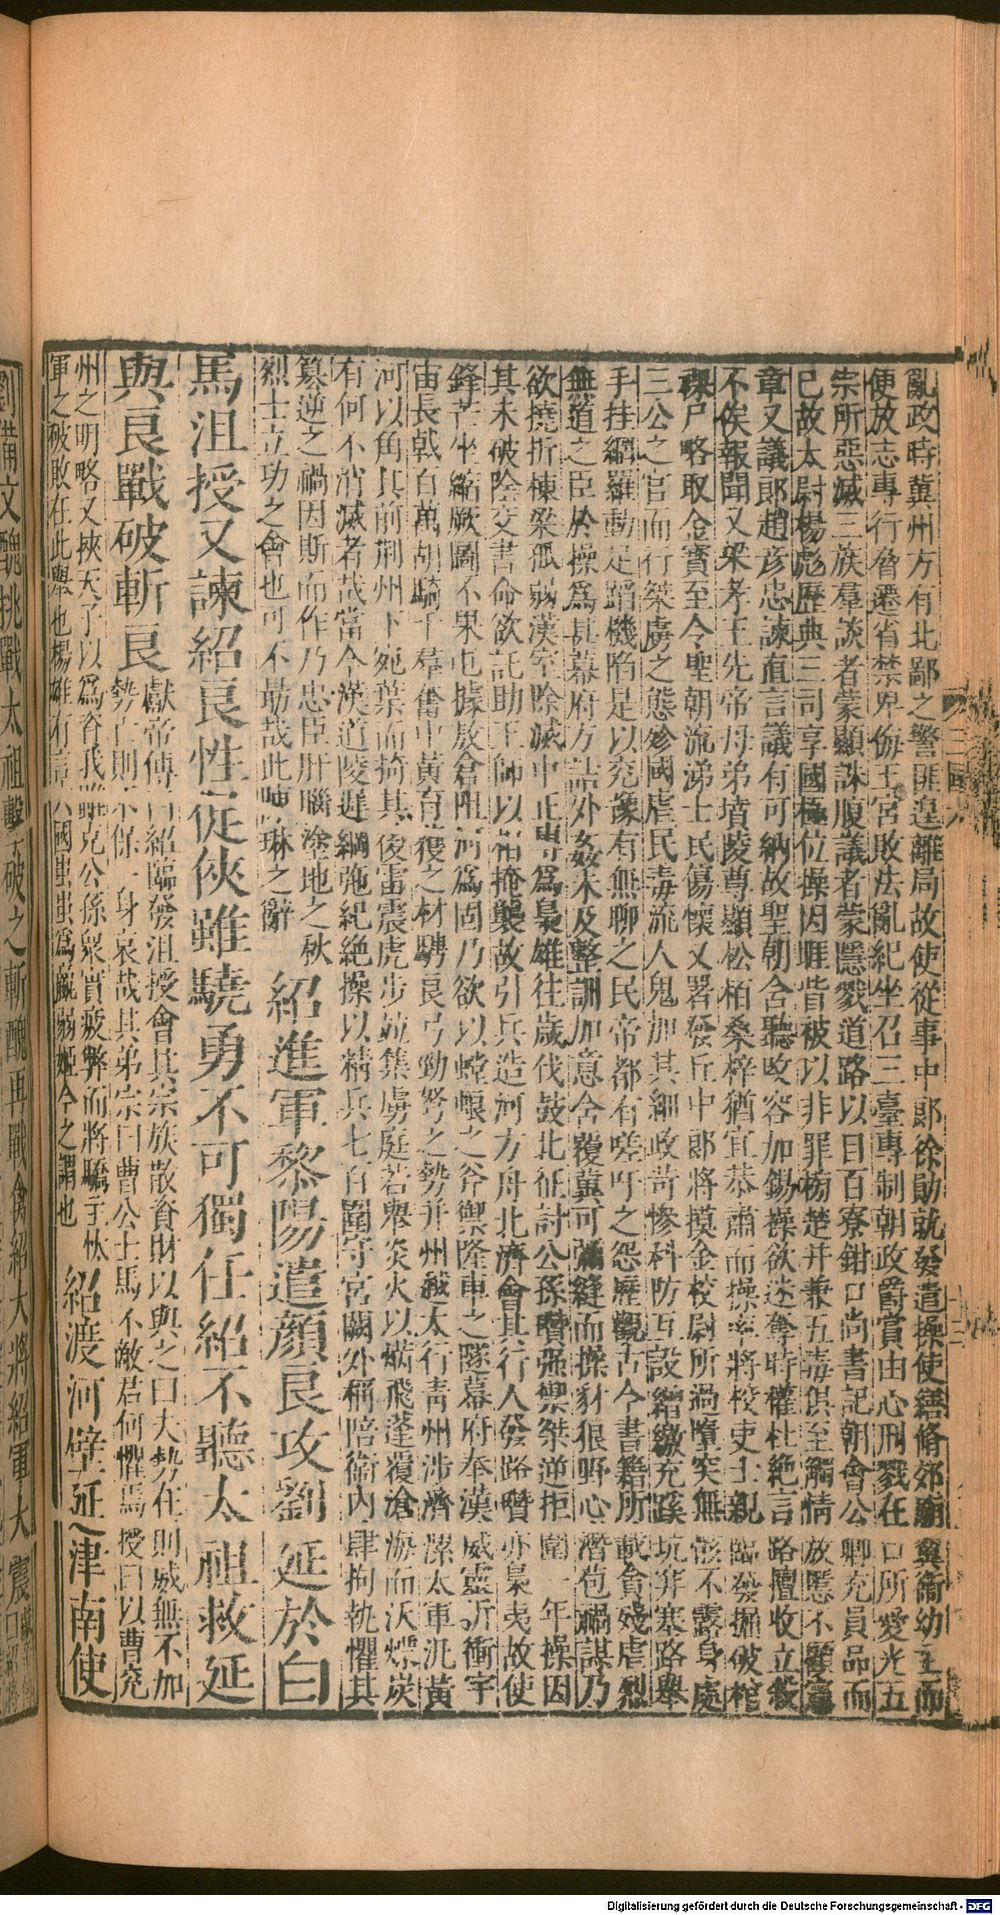 亂政時冀州方有北鄙之警匪遑離局故使從事中郎徐勛就發遣操使繕脩郊廟翼衞幼主而
便放志專行脅遷省禁卑侮王宮敗法亂紀坐召三臺專制朝政爵賞由心刑戮在口所愛光五
宗所惡滅三族羣談者蒙顯誅腹議者蒙隱戮道路以目百寮鉗口尚書記朝會公卿充員品而
已故太尉楊彪歷典三司享國極位操因睚眥被以非罪榜楚并兼五毒俱至觸情放慝不顧憲
章又議郎趙彦忠諫直言議有可納故聖朝含聽改容加錫操欲迷奪時權杜絕言路擅收立殺
不俟報聞又梁孝王先帝母弟墳陵尊顯松栢桑梓猶宜恭肅而操率將校吏士親臨發掘破棺
裸尸略取金寶至令聖朝流涕士民傷懷又署發丘中郎將摸金校尉所過墮突無骸不露身處
三公之官而行桀虜之態殄國虐民毒流人鬼加其細政苛慘科防互設繒繳充蹊坑穽塞路舉
手挂網羅動足蹈機陷是以兖豫有無聊之民帝都有嗟吁之怨歷觀古今書籍所載貪殘虐烈
無道之臣於操爲甚幕府方詰外姦未及整訓加意含覆冀可彌縫而操豺狼野心潛苞禍謀乃
欲撓折棟梁孤弱漢室除滅中正專爲梟雄往歲伐鼓北征討公孫瓚强禦桀逆拒圍一年操因
其未破陰交書命欲託助王師以相掩襲故引兵造河方舟北濟會其行人發路瓚亦梟夷故使
鋒芒挫縮厥圖不果屯據敖倉阻河爲固乃欲以螳蜋之斧禦隆車之隧幕府奉漢威靈折衝宇
宙長戟百萬胡騎千羣奮中黃育獲之材騁良弓勁弩之勢并州越太行青州涉濟漯大軍汎黃
河以角其前荆州下宛葉而掎其後雷震虎步並集虜庭若舉炎火以焫飛蓬覆滄海而沃熛炭
有何不消滅者哉當今漢道陵遲綱弛紀絕操以精兵七百圍守宮闕外稱陪衞內肆拘執懼其
篡逆之禍因斯而作乃忠臣肝腦塗地之秋
烈士立功之會也可不勗哉此陳琳之辭
紹進軍黎陽遣顏良攻劉延於白
馬沮授又諫紹良性促狹雖驍勇不可獨任紹不聽太祖救延
與良戰破斬良
獻帝傳曰紹臨發沮授會其宗族散資財以與之曰夫勢在則威無不加
勢亡則不保一身哀哉其弟宗曰曹公士馬不敵君何懼焉授曰以曹兖
州之明略又挾天子以爲資我雖克公孫衆實疲弊而將驕主忲
軍之破敗在此舉也楊雄有言六國蚩蚩爲嬴弱姬今之謂也
紹渡河壁延津南使
劉備文醜挑戰太祖擊破之斬醜再戰禽紹大將紹軍大震
三國六